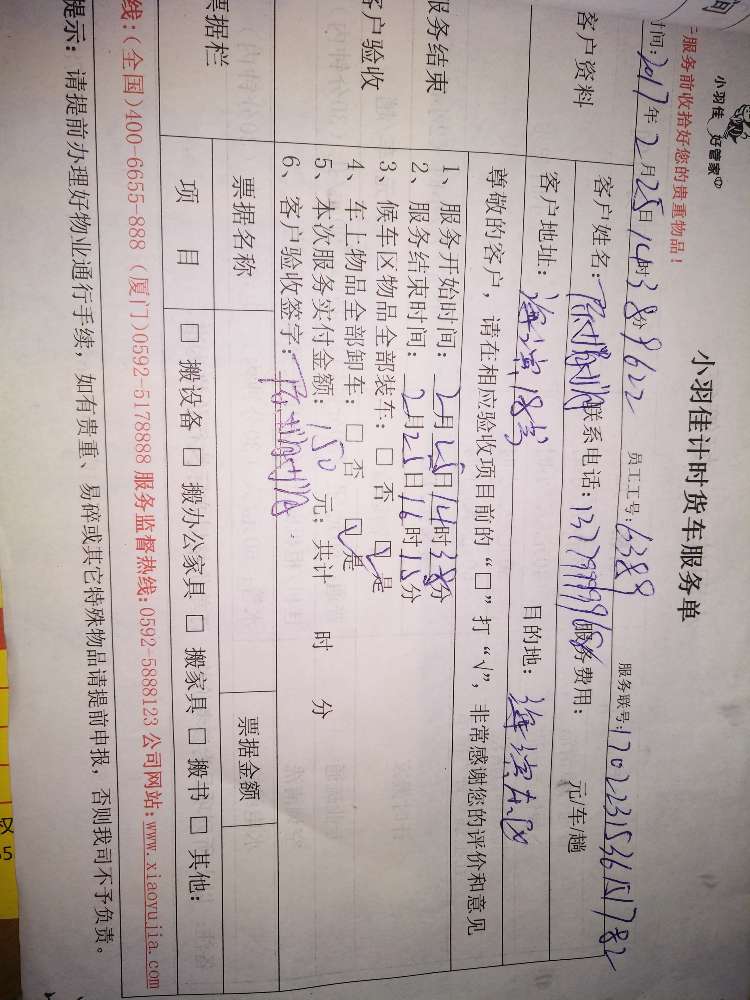 小羽佳 好管家
服务前收拾好您的贵重物品！
小羽佳计时货车服务单
时间：2017年2月25日14时38分 9622 员工工号：6389 服务联号：1702231536151782
客户资料
客户姓名： 联系电话： 服务费用： 元/车/趟
客户地址：海滨18号 目的地：海滨东区
尊敬的客户，请在相应验收项目前的“□”打“√”，非常感谢您的评价和意见
服务结束
客户验收
1、服务开始时间：2月25日14时38分
2、服务结束时间：2月25日16时15分
3、候车区物品全部装车：□ 否 ☑ 是
4、车上物品全部卸车：□ 否 ☑ 是
5、本次服务实付金额：150 元；共计 时 分
6、客户验收签字：
票据栏
票据名称 票据金额
项 目 □ 搬设备 □ 搬办公家具 □ 搬家具 □ 搬书 □ 其他：
线：(全国)400-6655-888 (厦门)0592-5178888 服务监督热线：0592-5888123 公司网站：www.xiaoyujia.com
提示：请提前办理好物业通行手续，如有贵重、易碎或其它特殊物品请提前申报，否则我司不予负责。